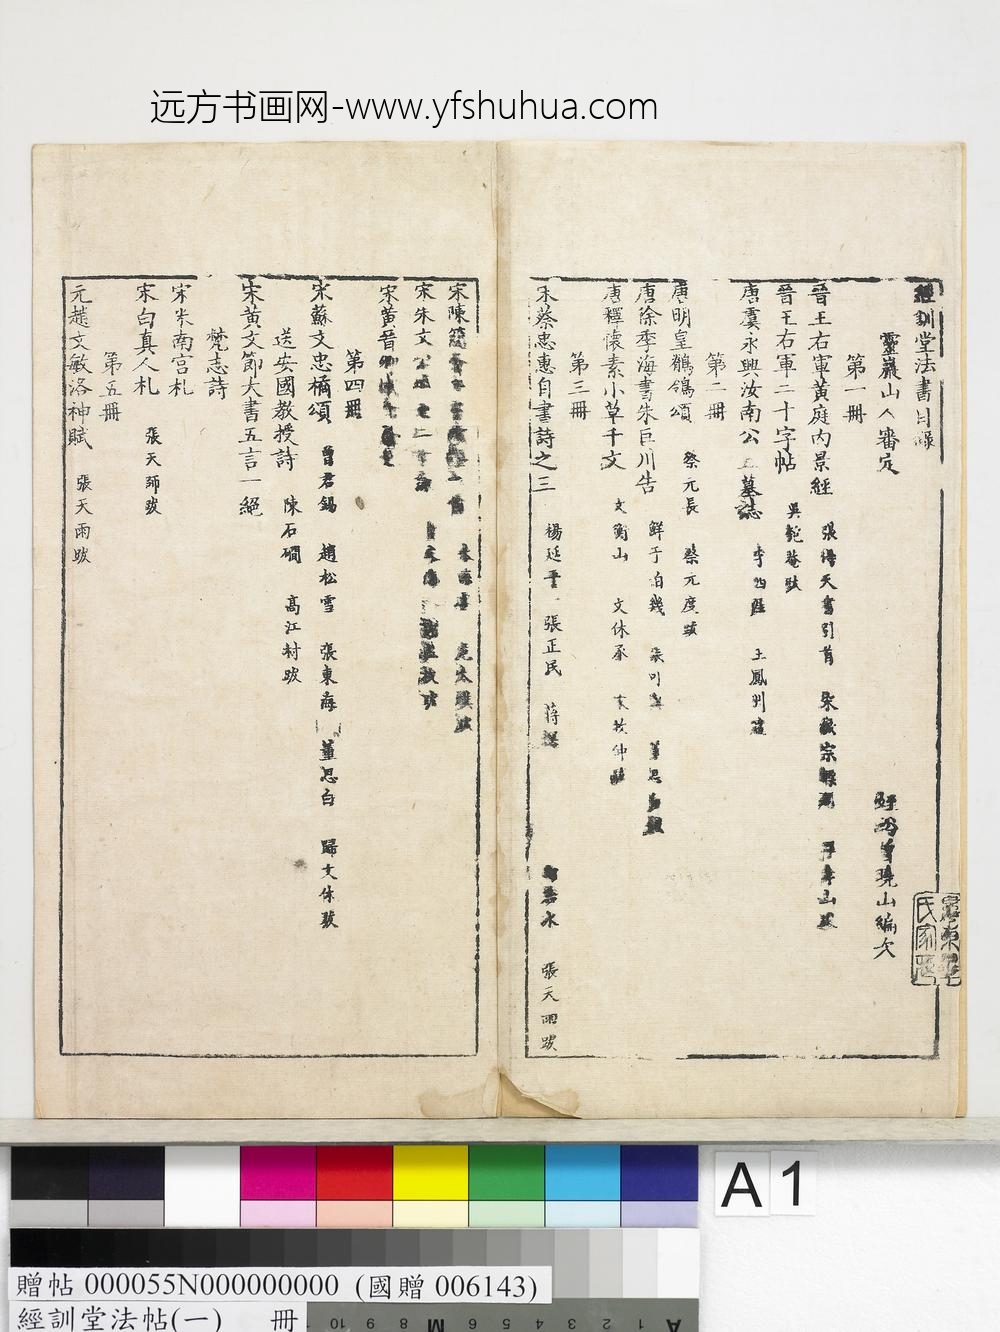 远方书画网-www.yfshuhua.com
經訓堂法書目錄
靈巖山人審定
山編次
第一冊
晉王右軍黃庭內景經 張得天書引首
晉王右軍二十字帖 吳匏菴跋
唐虞永興汝南公主墓誌 王鳳洲
第二冊
唐明皇鶺鴒頌 蔡元長 蔡元度跋
唐徐季海書朱巨川告 鮮于伯幾
唐釋懷素小草千文 文衡山 文休承
第三冊
宋蔡忠惠自書詩之三 楊廷 張正民 蔣 水 張天雨跋
宋陳
宋朱文公
宋黃晉卿
第四冊
宋蘇文忠橘頌 曾君錫 趙松雪 張東海 董思白 歸文休跋
送安國教授詩 陳石磵 高江村跋
宋黃文節大書五言一絕
梵志詩
宋米南宮札
宋白真人札 張天師跋
第五冊
元趙文敏洛神賦 張天雨跋
A 1
贈帖 000055N000000000 (國贈 006143)
經訓堂法帖(一) 冊